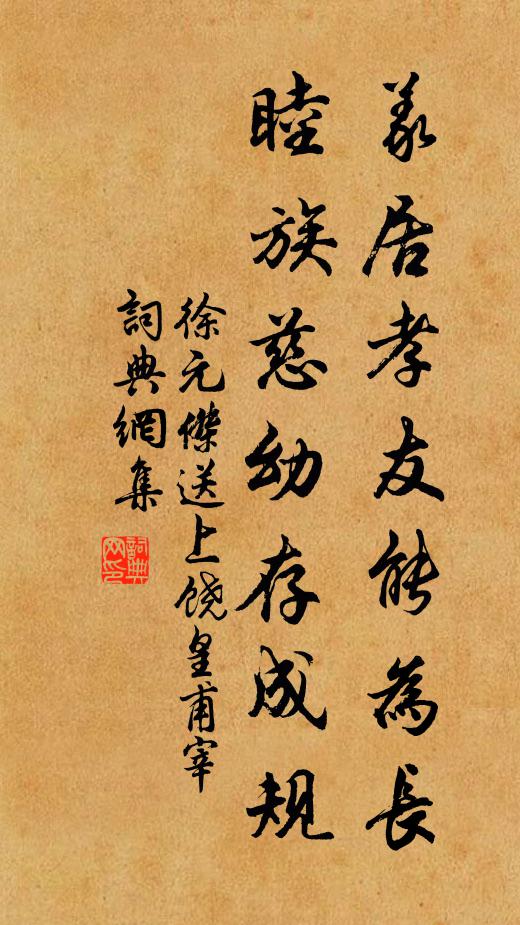 義居孝友能為長
睦族慈幼存成規
徐元傑送上饒皇甫宰
詞典網集
詞典
网印